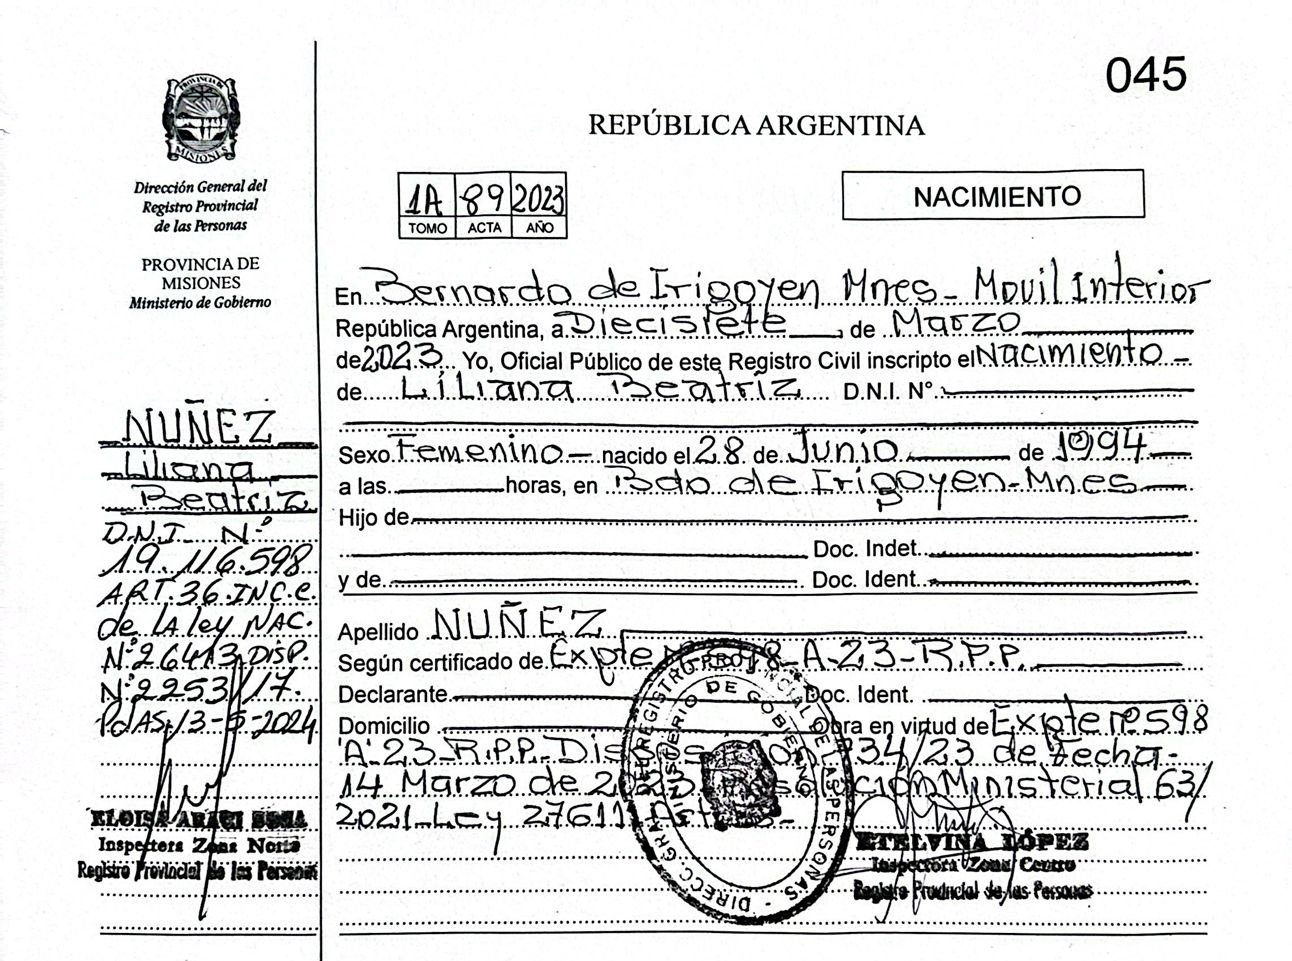 045
REPÚBLICA ARGENTINA
PROVINCIA DE
MISIONES
Dirección General del
Registro Provincial
de las Personas
PROVINCIA DE
MISIONES
Ministerio de Gobierno
1A 89 2023
TOMO ACTA AÑO
NACIMIENTO
En Bernardo de Irigoyen Mnes - Movil Interior
República Argentina, a Diecisiete de Marzo
de 2023 Yo, Oficial Público de este Registro Civil inscripto el Nacimiento -
de Liliana Beatriz D.N.I. N°
Sexo Femenino - nacido el 28 de Junio de 1994
a las horas, en Bdo de Irigoyen - Mnes
Hijo de
Doc. Indet.
y de Doc. Ident.
Apellido NUÑEZ
Según certificado de Expte 598-A-23-R.P.P.
Declarante Doc. Ident.
Domicilio Obra en virtud de Expte nº 598
"A" 23-R.P.P- 234/23 de Fecha -
14 Marzo de Ministerial 63/
2021-Ley 27611
NUÑEZ
Liliana
Beatriz
D.N.I. Nº
19.116.598
ART. 36. INC. C.
de LA ley NAC.
Nº 26413 DISP.
Nº 2253/17.
PdAS, 13-5-2024
Inspectora Zona Norte
Registro Provincial de las Personas
DIRECC. GRAL. DEL REGISTRO PROVINCIAL DE LAS PERSONAS -
MINISTERIO DE GOBIERNO
ETELVINA LÓPEZ
Inspectora Zona Centro
Registro Provincial de las Personas